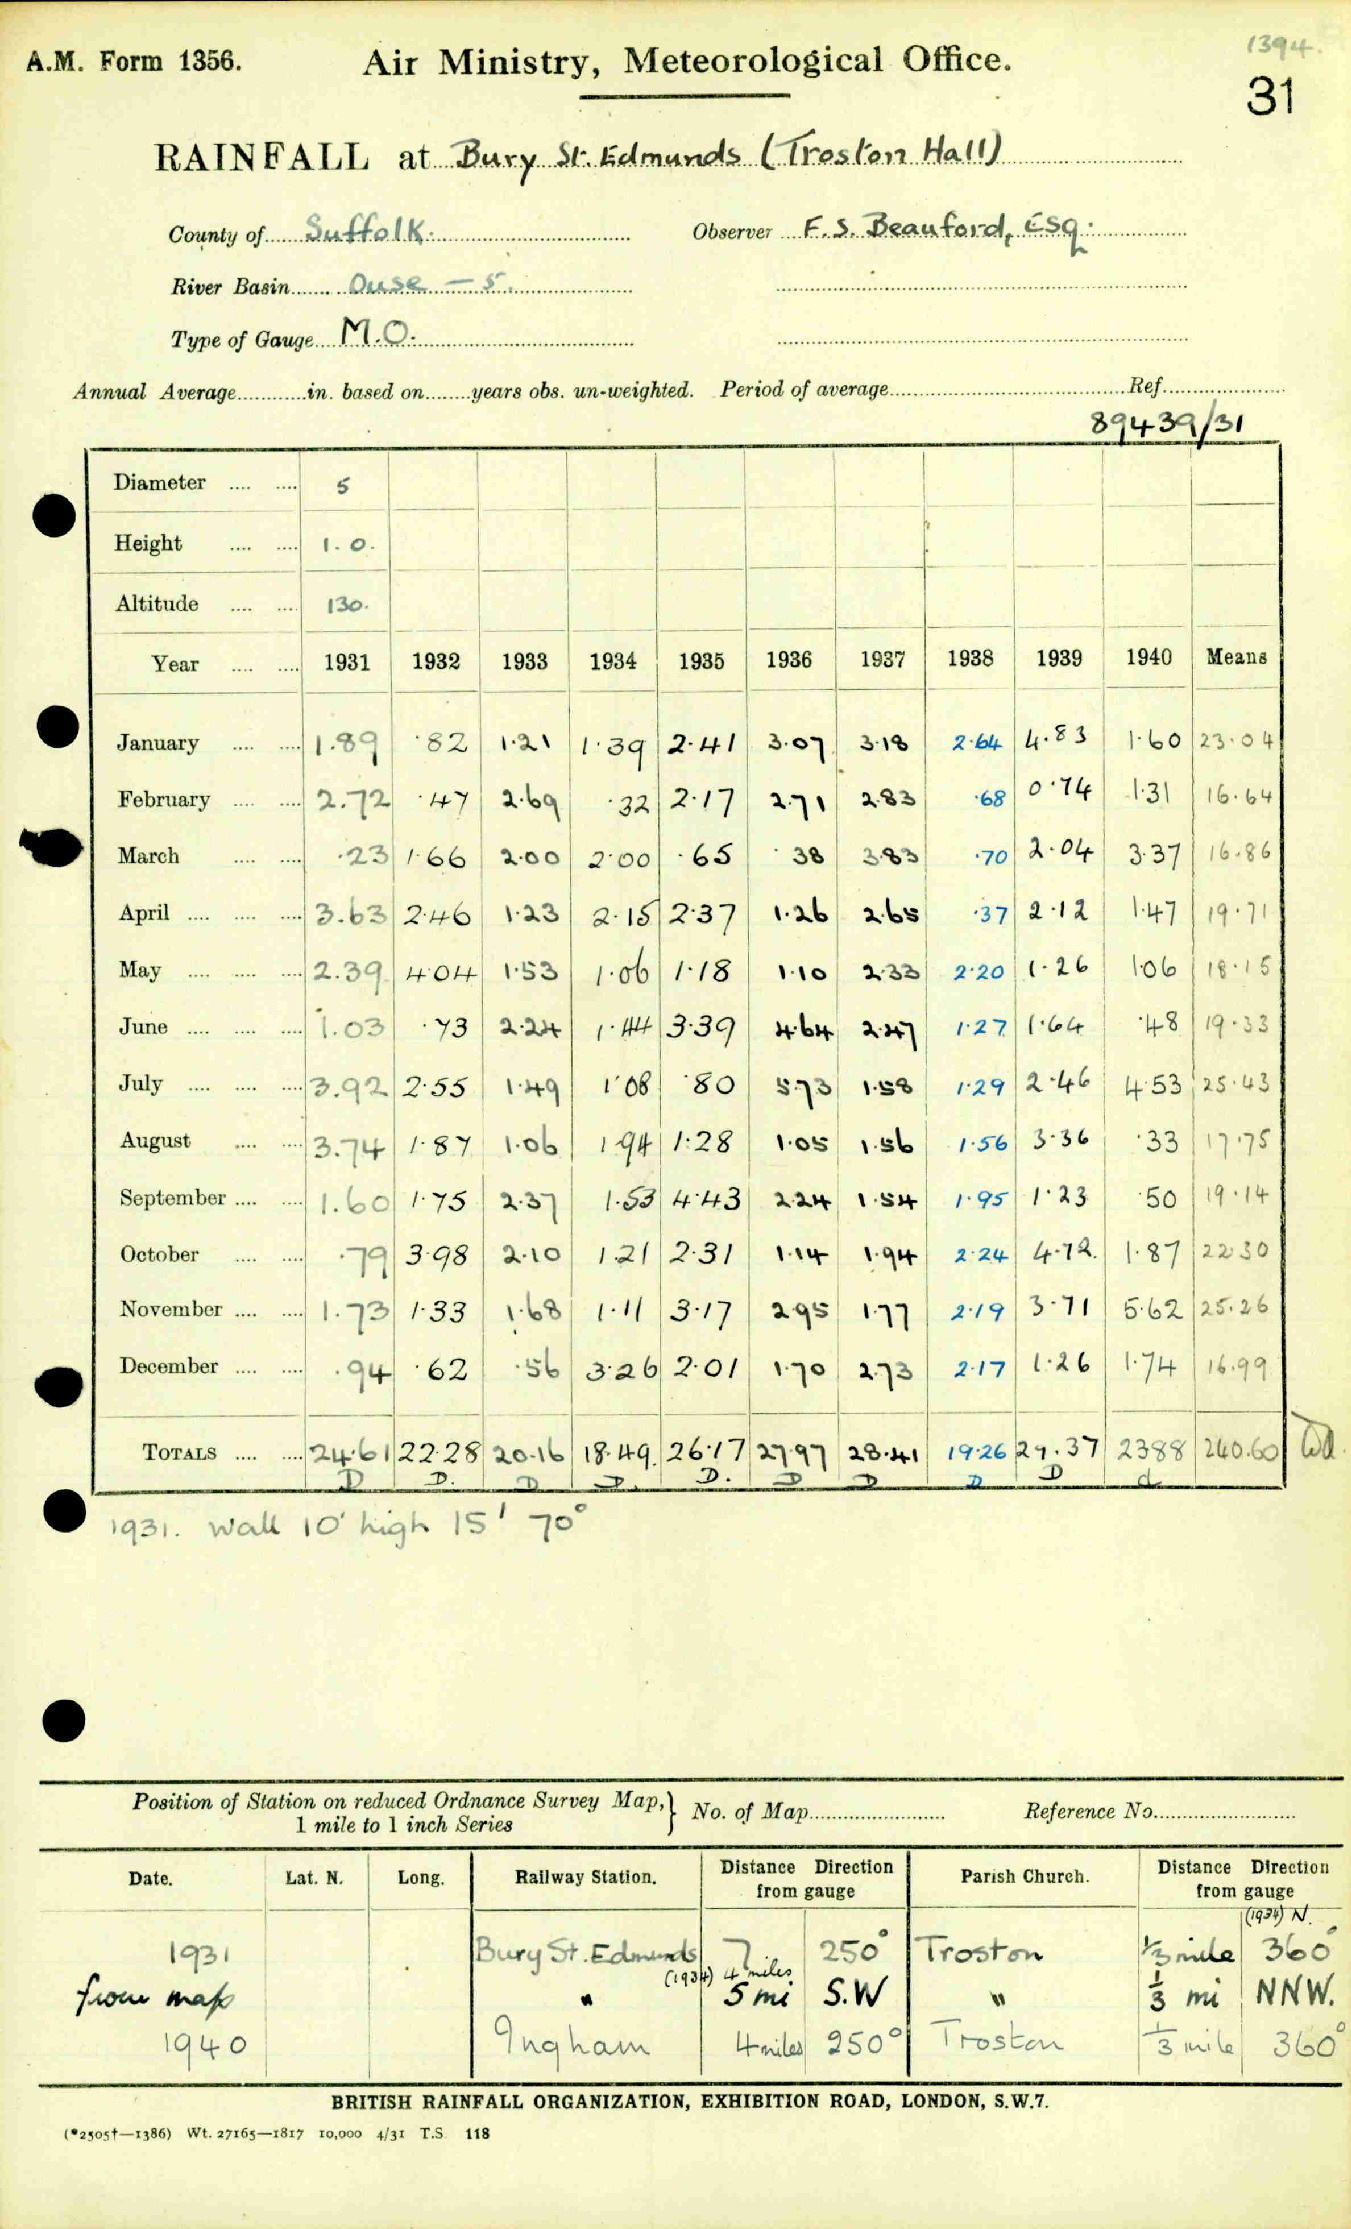 1394.
A.M. Form 1356. Air Ministry, Meteorological Office.
31
RAINFALL at Bury St. Edmunds (Troston Hall)
County of Suffolk. Observer F.S. Beauford, Esq.
River Basin Ouse — 5.
Type of Gauge M.O.
Annual Average in. based on years obs. un-weighted. Period of average Ref.
89439/31
Diameter 5
Height 1.0.
Altitude 130.
Year 1931 1932 1933 1934 1935 1936 1937 1938 1939 1940 Means
January 1.89 .82 1.21 1.39 2.41 3.07 3.18 2.64 4.83 1.60 23.04
February 2.72 .47 2.69 .32 2.17 2.71 2.83 .68 0.74 1.31 16.64
March .23 1.66 2.00 2.00 .65 .38 3.83 .70 2.04 3.37 16.86
April 3.63 2.46 1.23 2.15 2.37 1.26 2.65 .37 2.12 1.47 19.71
May 2.39 4.04 1.53 1.06 1.18 1.10 2.33 2.20 1.26 1.06 18.15
June 1.03 .73 2.24 1.44 3.39 4.64 2.47 1.27 1.64 .48 19.33
July 3.92 2.55 1.49 1.08 .80 5.73 1.58 1.29 2.46 4.53 25.43
August 3.74 1.87 1.06 1.94 1.28 1.05 1.56 1.56 3.36 .33 17.75
September 1.60 1.75 2.37 1.53 4.43 2.24 1.54 1.95 1.23 .50 19.14
October .79 3.98 2.10 1.21 2.31 1.14 1.94 2.24 4.72. 1.87 22.30
November 1.73 1.33 1.68 1.11 3.17 2.95 1.77 2.19 3.71 5.62 25.26
December .94 .62 .56 3.26 2.01 1.70 2.73 2.17 1.26 1.74 16.99
TOTALS 24.61 22.28 20.16 18.49. 26.17 27.97 28.41 19.26 29.37 23.88 240.60
D D. D D. D. D D D D d
1931. Wall 10' high 15' 70°
Position of Station on reduced Ordnance Survey Map, 1 mile to 1 inch Series } No. of Map Reference No.
Date. Lat. N. Long. Railway Station. Distance Direction from gauge Parish Church. Distance Direction from gauge
(1934) N.
1931 Bury St. Edmunds 7 250° Troston 1/3 mile 360°
(1934) 4 miles
from map " 5 mi S.W " 1/3 mi NNW.
1940 Ingham 4 miles 250° Troston 1/3 mile 360°
BRITISH RAINFALL ORGANIZATION, EXHIBITION ROAD, LONDON, S.W.7.
(*2505†—1386) Wt. 27165—1817 10,000 4/31 T.S 118